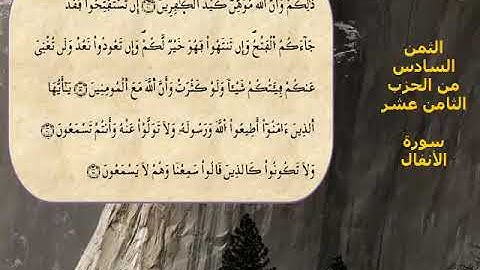 ذَٰلِكُمْ وَأَنَّ اَللَّهَ مُوَهِّنٞ كَيْدَ اَلْكٰ۪فِرِينَۖ إِن تَسْتَفْتِحُواْ فَقَدْ
جَآءَكُمُ اُلْفَتْحُۖ وَإِن تَنتَهُواْ فَهُوَ خَيْرٞ لَّكُمْۖ وَإِن تَعُودُواْ نَعُدْ وَلَن تُغْنِيَ
عَنكُمْ فِئَتُكُمْ شَيْـٔاٗ وَلَوْ كَثُرَتْ وَأَنَّ اَللَّهَ مَعَ اَلْمُومِنِينَۖ يَٰٓأَيُّهَا
اَلذِينَ ءَامَنُوٓاْ أَطِيعُواْ اُللَّهَ وَرَسُولَهُۥ وَلَا تَوَلَّوْاْ عَنْهُ وَأَنتُمْ تَسْمَعُونَۖ
وَلَا تَكُونُواْ كَالذِينَ قَالُواْ سَمِعْنَا وَهُمْ لَا يَسْمَعُونَۖ
الثمن
السادس
من الحزب
الثامن عشر
سورة
الأنفال